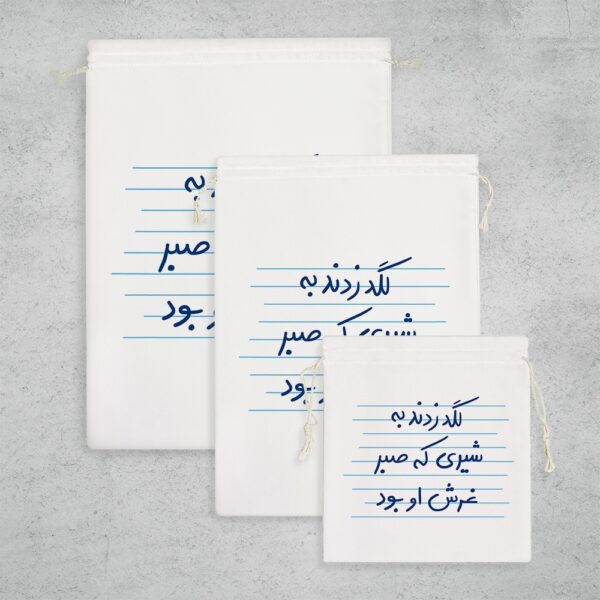 لگد زدند به
صبر
و بود
لگد زدند به
شیری که صبر
بود
لگد زدند به
شیری که صبر
غرش او بود